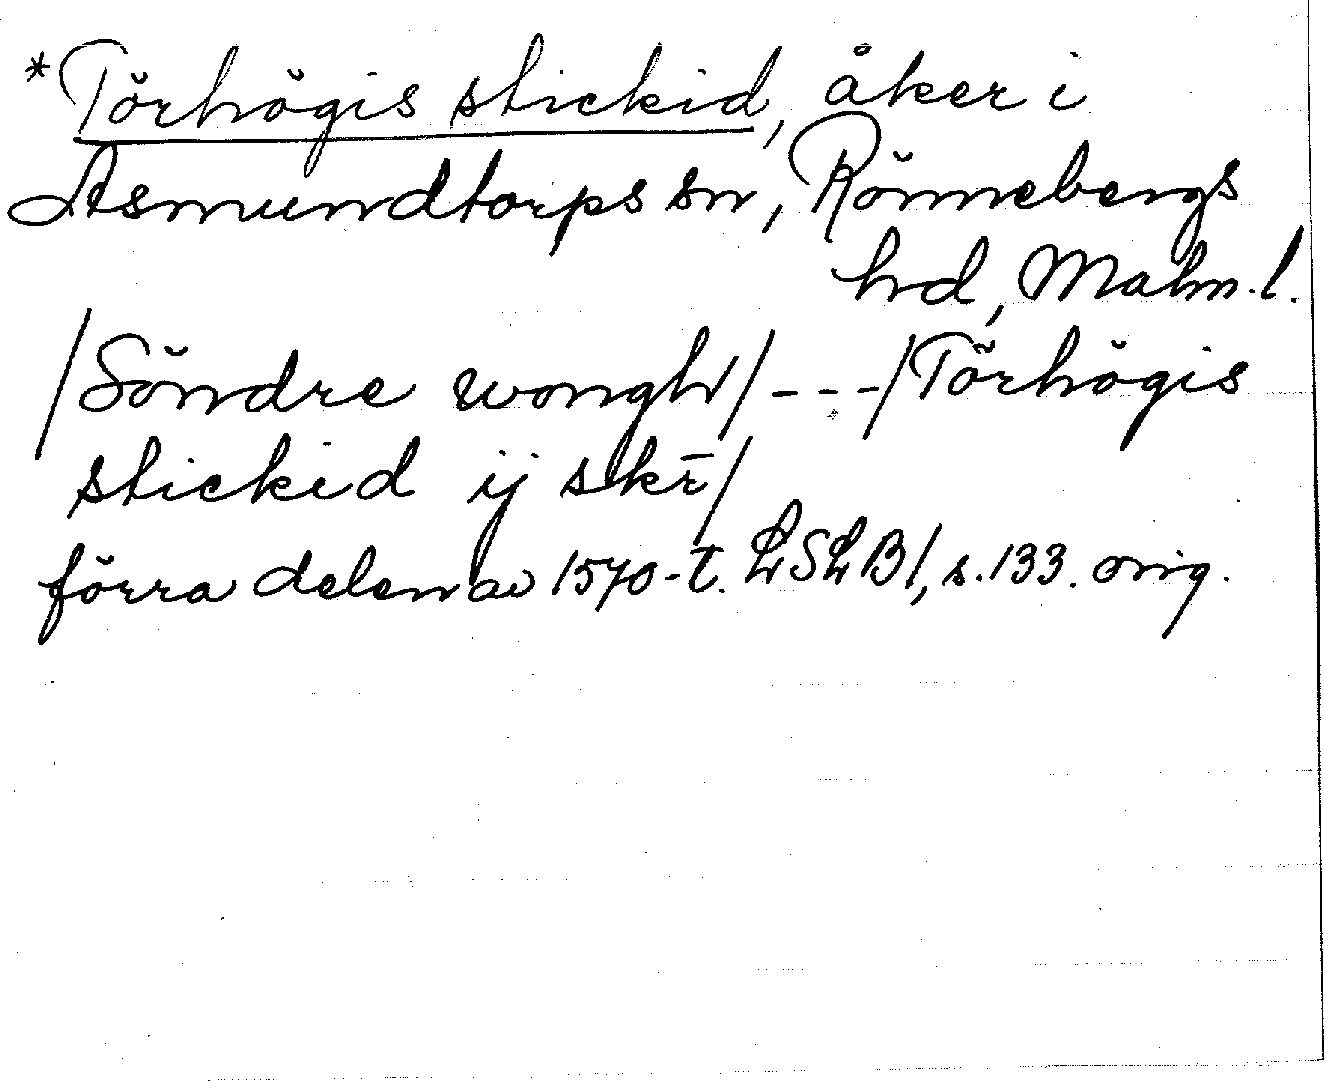 *Törhögis stickid, åker i
Asmundtorps sn, Rönnebergs
hd, Malm. l.
/Söndre wongh/ - - - /Törhögis
stickid ij skr̄/
förra delen av 1570-t. LSLB1, s. 133. orig.